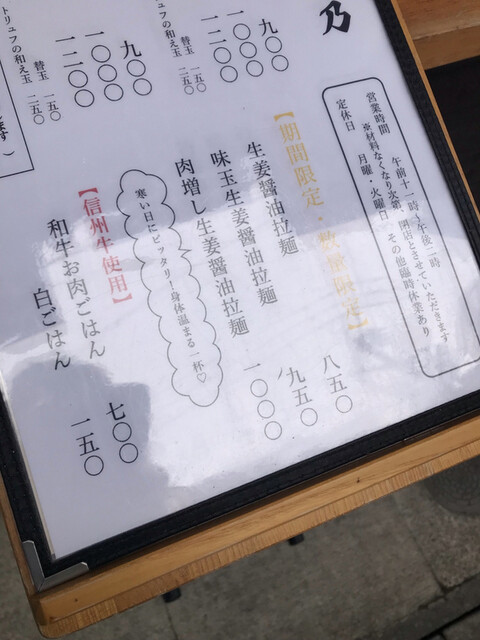 乃
営業時間　午前十一時～午後二時
※材料なくなり次第、閉店とさせていただきます
定休日　月曜・火曜日、その他臨時休業あり
九〇〇
一〇〇〇
一二〇〇
替玉　一五〇
トリュフの和え玉　二五〇
九〇〇
一〇〇〇
一二〇〇
替玉　一五〇
トリュフの和え玉　二五〇
【期間限定・数量限定】
生姜醤油拉麺　八五〇
味玉生姜醤油拉麺　九五〇
肉増し生姜醤油拉麺　一〇〇〇
寒い日にピッタリ！身体温まる一杯♡
【信州牛使用】
和牛お肉ごはん　七〇〇
白ごはん　一五〇